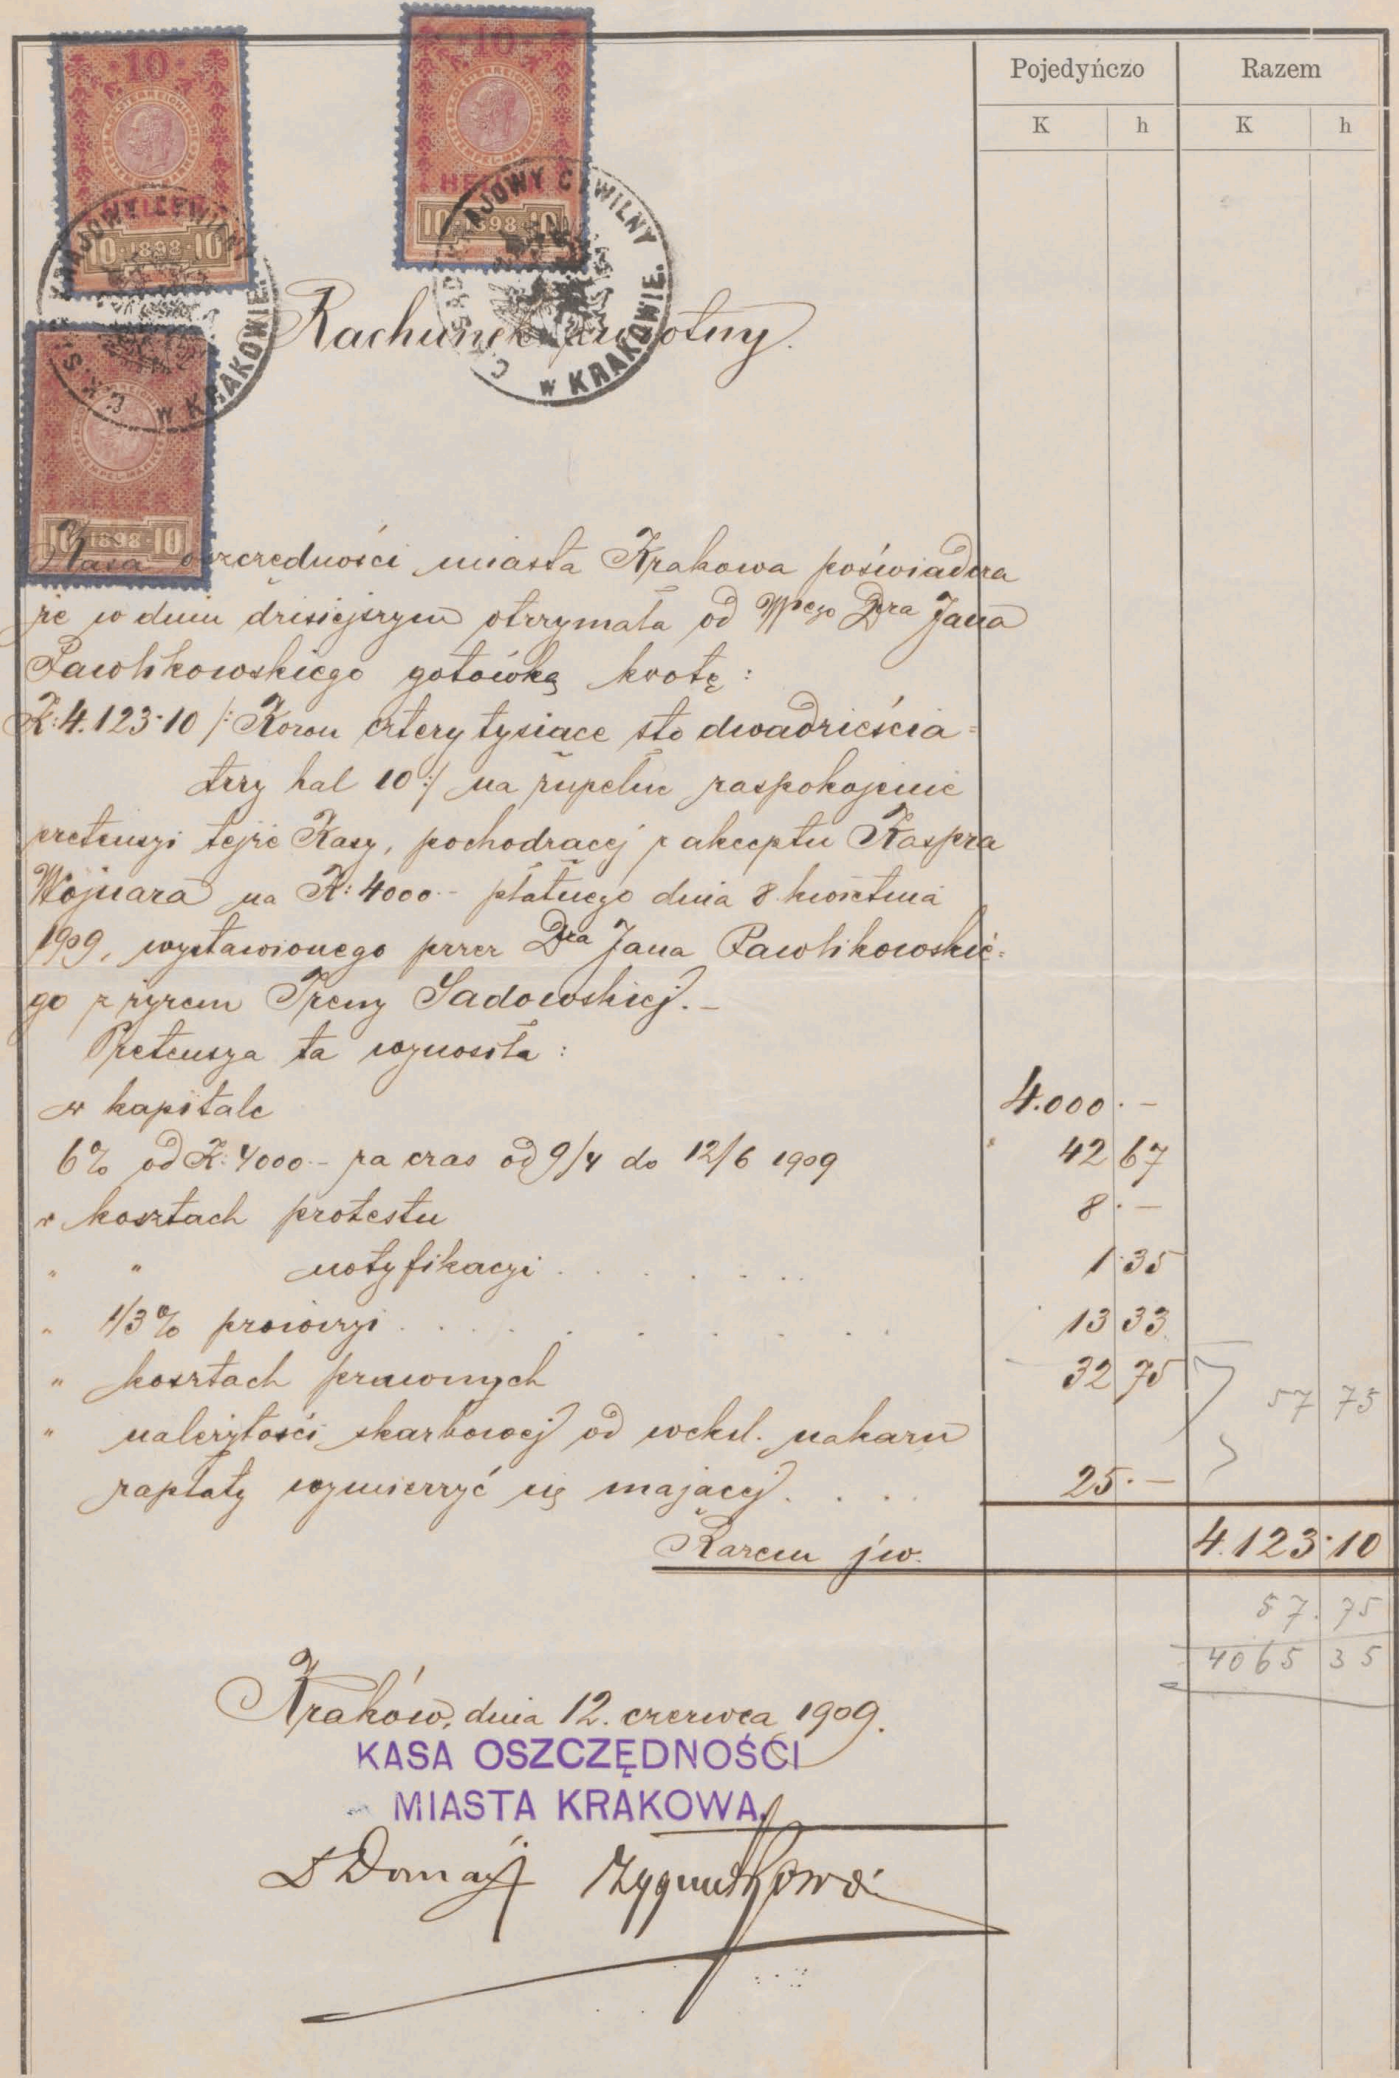 Pojedyńczo Razem
K h K h
10
10
HELLER
10 · 1898 · 10
10 · 1898 · 10
C. K. SĄD KRAJOWY CYWILNY W KRAKOWIE.
C. K. SĄD KRAJOWY CYWILNY W KRAKOWIE.
STEMPEL-MARKE
10 1898 10
Rachunek zwrotny.
Kasa oszczędności miasta Krakowa poświadcza
że w dniu dzisiejszym otrzymała od Wpego Dra Jana
Pawlikowskiego gotówką kwotę:
K: 4.123·10 /: Koron cztery tysiące sto dwadzieścia=
trzy hal 10:/ na zupełne zaspokojenie
pretensyi tejże Kasy, pochodzącej z akceptu Kaspra
Wojnara na K: 4000·- płatnego dnia 8. kwietnia
1909, wystawionego przez Dra Jana Pawlikowskie=
go z żyrem Ireny Sadowskiej.–
Pretensya ta wynosiła:
w kapitale 4.000·–
6% od K: 4000·- za czas od 9/4 do 12/6 1909 42 67
w kosztach protestu 8·–
" " notyfikacyi . . . . . 1·35
" 1/3% prowizyi . . . . . . . . . 13 33
" kosztach prawnych 32 75
57 75
" należytości skarbowej od weksl. nakazu
zapłaty wymierzyć się mającej . . . . 25·–
Razem jw. 4.123·10
57.75
4065 35
Kraków, dnia 12. czerwca 1909.
KASA OSZCZĘDNOŚCI
MIASTA KRAKOWA.